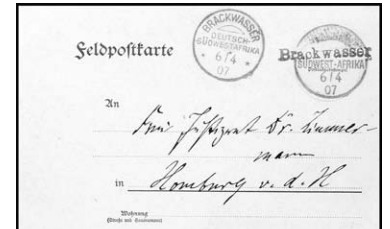 BRACKWASSER
DEUTSCH-
SÜDWESTAFRIKA
* 6/4 *
07
Brackwasser
SÜDWEST-AFRIKA
6/4
07
Feldpostkarte
An
Frau Justizrat Dr. Zimmer-
mann
in Homburg v. d. H
Wohnung
(Straße und Hausnummer)